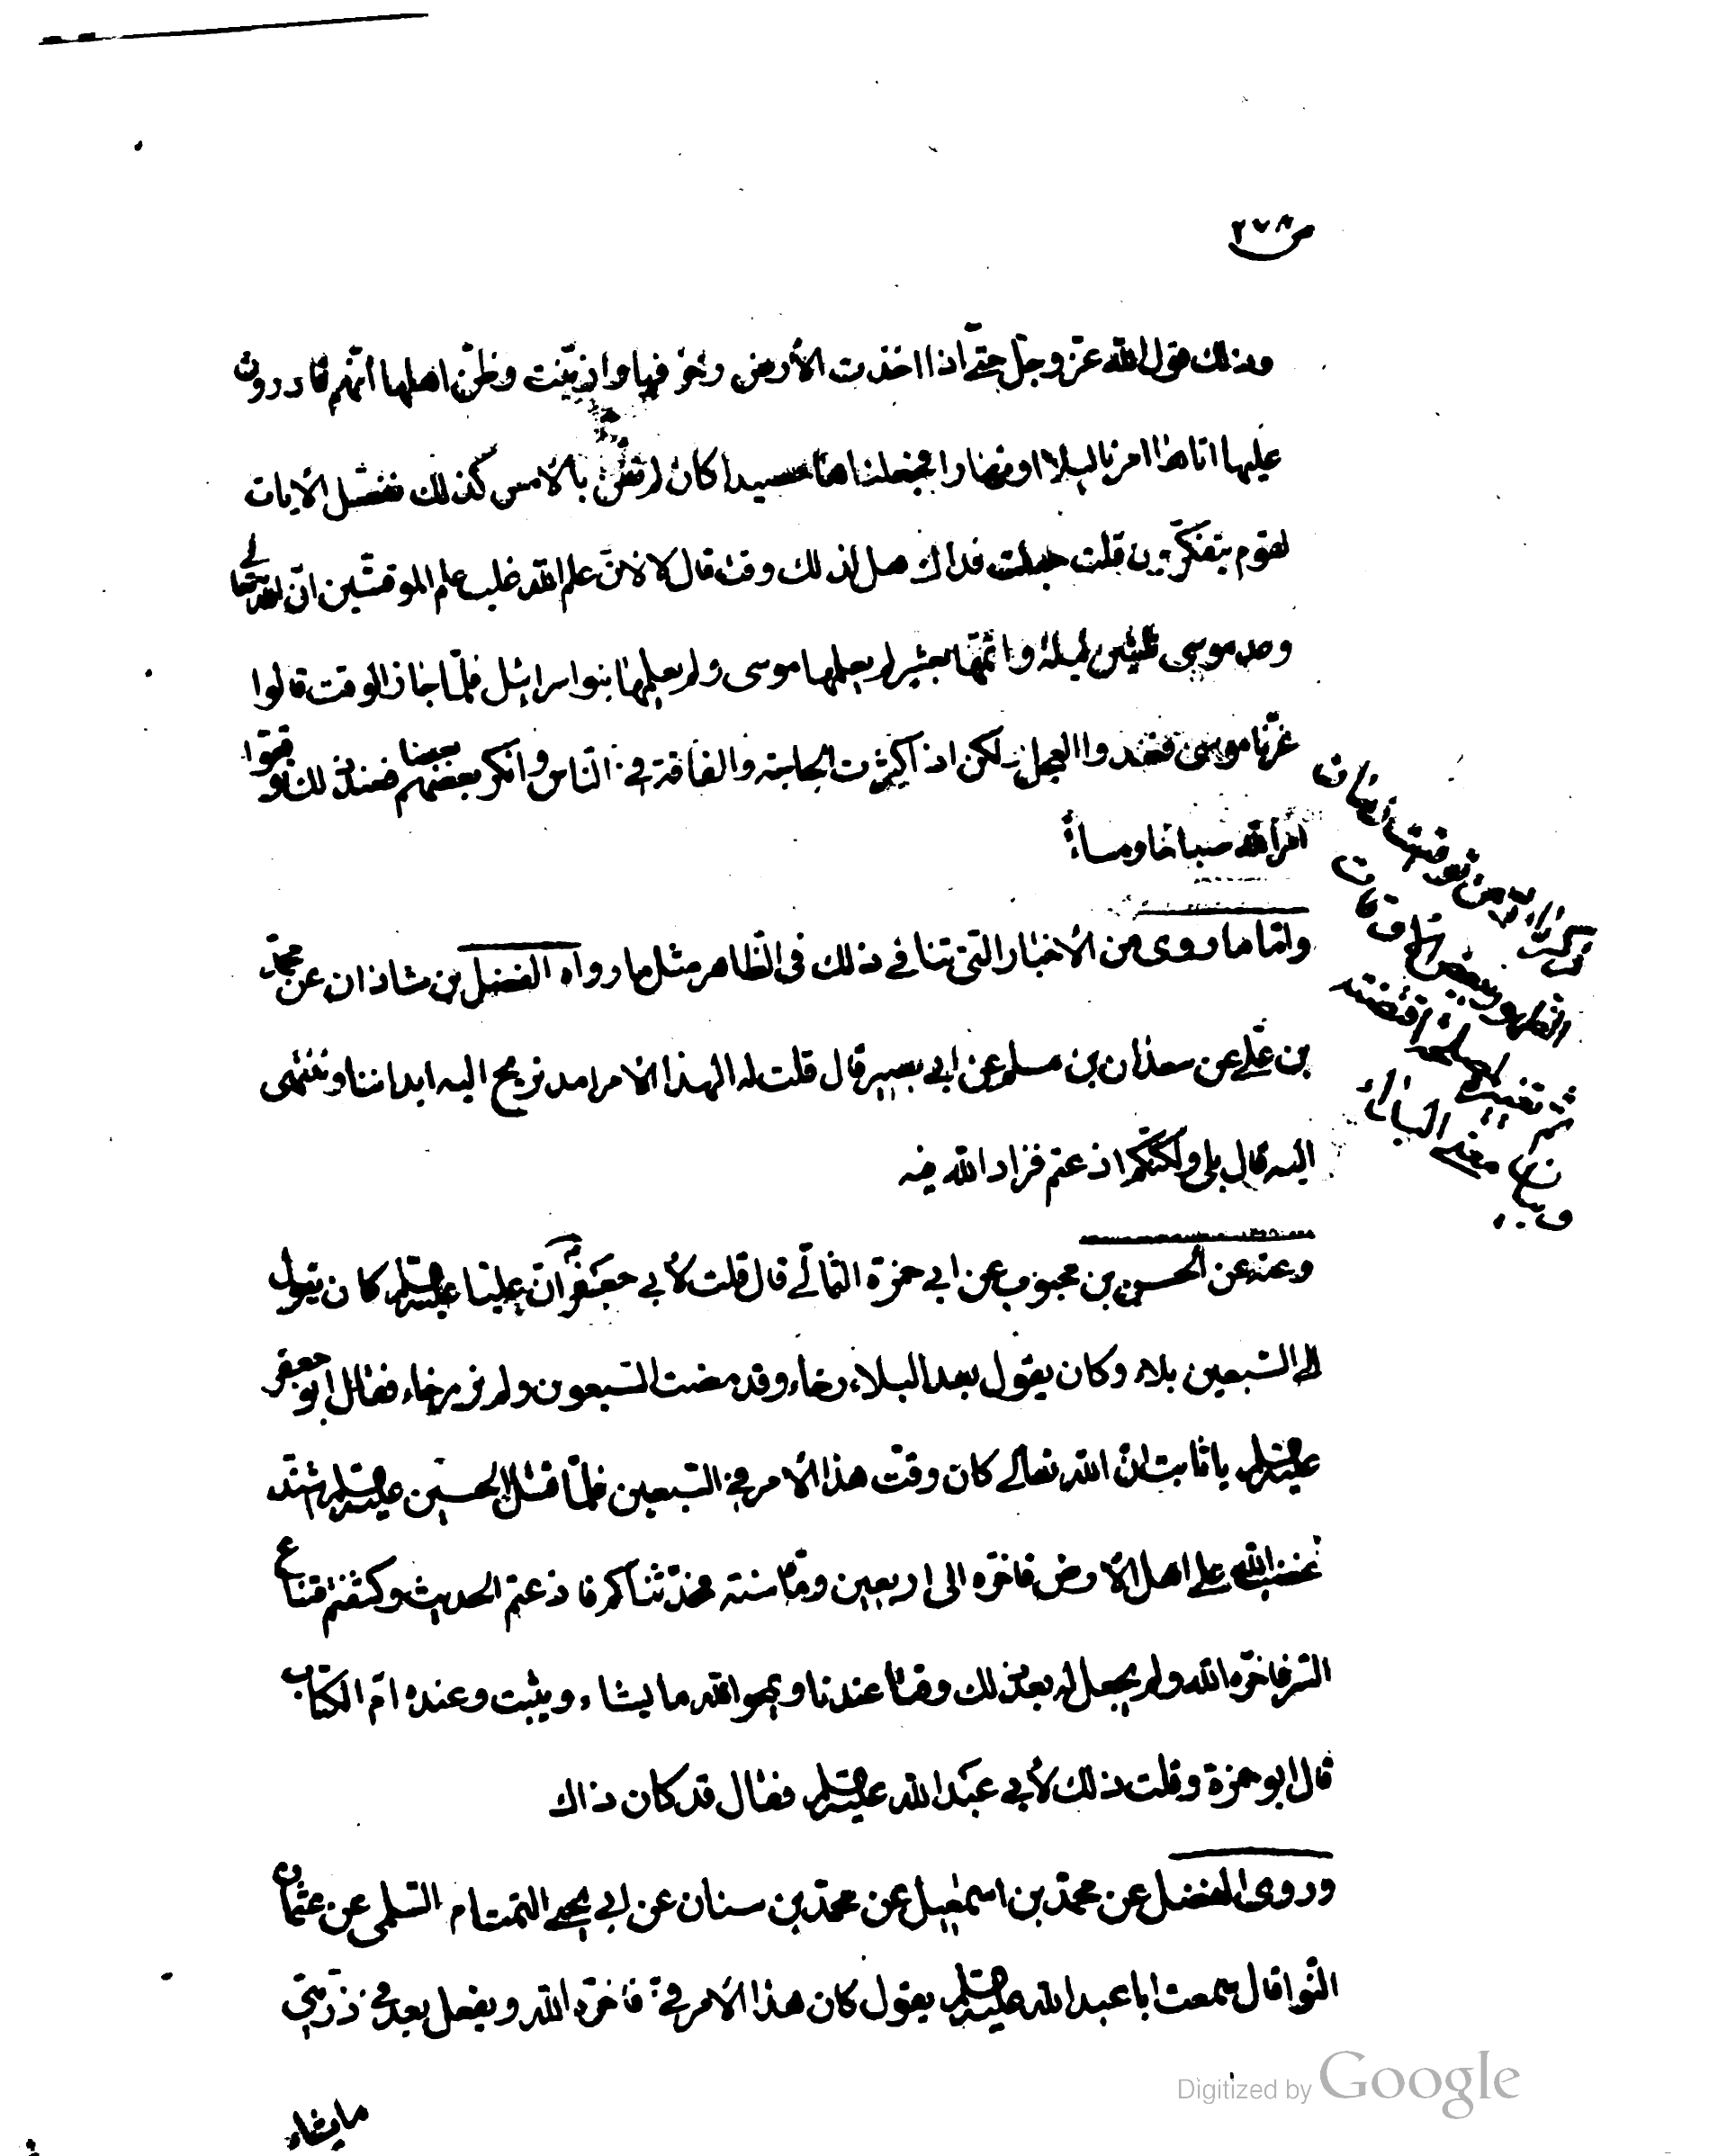 ص ٢٧٨
وذلك قول الله عزّ وجلّ حتّى اذا اخذت الأرض زخرفها وازيّنت وظنّ اهلها انّهم قادرون
عليها اتاها امرنا ليلا او نهارا فجعلناها حصيدا كان لم تغن بالأمس كذلك نفصّل الآيات
لقوم يتفكّرون قلت جعلت فداك هل لذلك وقت قال لا لانّ علم الله غلب علم الموقتين انّ الله تعالى
وعد موسى ثلثين ليلة واتمّها بعشر لم يعلمها موسى ولم يعلمها بنو اسرائيل فلمّا جاز الوقت قالوا
غرّنا موسى فعبدوا العجل ولكن اذا كثرت الحاجة والفاقة في الناس وانكر بعضهم بعضا فعند ذلك توقّعوا
امر الله صباحا ومساءً
وامّا ما روى من الأخبار التي تنافي ذلك في الظاهر مثل ما رواه الفضل بن شاذان عن محمّد
بن علي عن سعدان بن مسلم عن ابي بصير قال قلت له الهذا الامر امد نريح اليه ابداننا وننتهى
اليه قال بلى ولكنّكم اذعتم فزاد الله فيه
وعنه عن الحسن بن محبوب عن ابي حمزة الثمالي قال قلت لأبي جعفر انّ عليّا عليه السلم كان يقول
الى السّبعين بلاء وكان يقول بعد البلاء رخاء وقد مضت السّبعون ولم نر رخاء فقال ابو جعفر
عليه السلم يا ثابت انّ الله تعالى كان وقّت هذا الأمر في السّبعين فلمّا قتل الحسين عليه السلم اشتدّ
غضب الله على اهل الأرض فاخّره الى اربعين ومأة سنة فحدّثناكم فاذعتم الحديث وكشفتم قناع
السّر فاخّره الله ولم يجعل له بعد ذلك وقتا عندنا ويمحو الله ما يشاء ويثبت وعنده امّ الكتاب
قال ابو حمزة وقلت ذلك لأبي عبد الله عليه السلم فقال قد كان ذاك
وروى الفضل عن محمّد بن اسمعيل عن محمّد بن سنان عن ابي يحيى التمتام السّلمى عن عثمان
النّوا قال سمعت ابا عبد الله عليه السلم يقول كان هذا الأمر فيّ فاخّره الله ويفعل بعد في ذرّيتي
ما يشاء
Digitized by Google